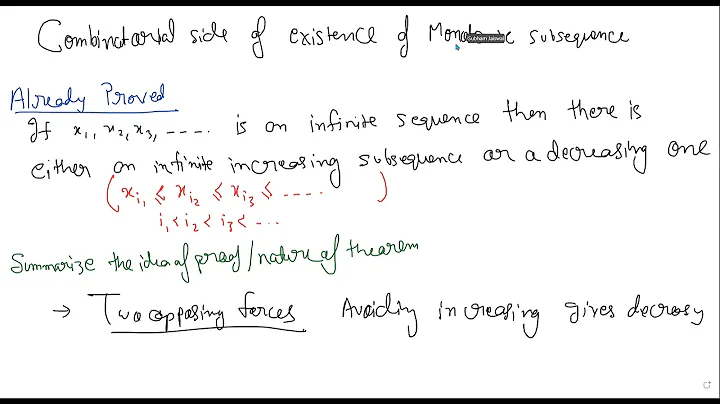 Combinatorial side of existence of Mono ic subsequence
Subham Jaiswal
Already Proved
If x₁, x₂, x₃, ---- is an infinite sequence then there is
either an infinite increasing subsequence or a decreasing one
( xᵢ₁ ≤ xᵢ₂ ≤ xᵢ₃ ≤ ---- )
i₁ < i₂ < i₃ < ---
Summarize the idea of proof/nature of theorem
→ Two opposing forces Avoiding increasing gives decreasy